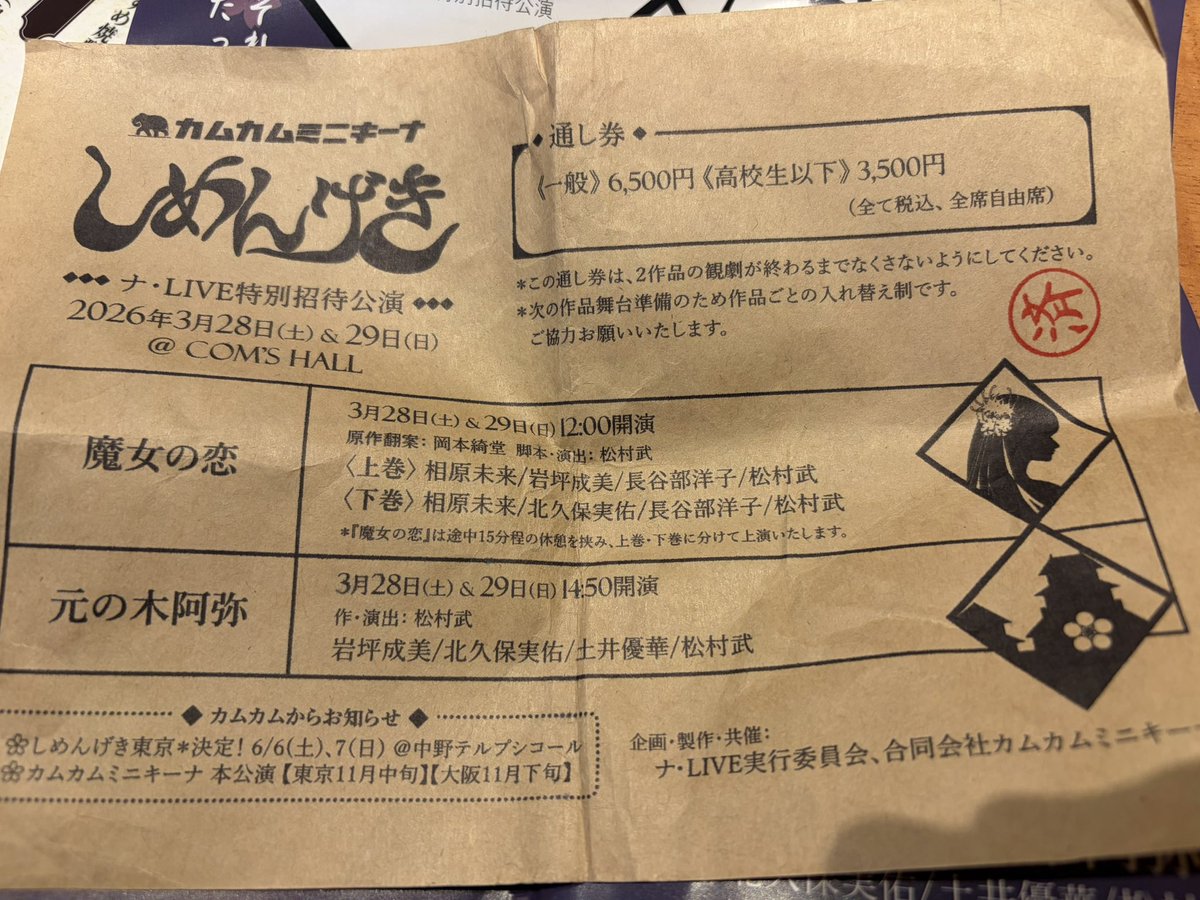 特別招待公演
カムカムミニキーナ
しめんげき
ナ・LIVE特別招待公演
2026年3月28日(土) & 29日(日)
@ COM'S HALL
通し券
《一般》6,500円《高校生以下》3,500円
(全て税込、全席自由席)
*この通し券は、2作品の観劇が終わるまでなくさないようにしてください。
*次の作品舞台準備のため作品ごとの入れ替え制です。
ご協力お願いいたします。
済
魔女の恋
3月28日(土) & 29日(日) 12:00開演
原作翻案: 岡本綺堂 脚本・演出: 松村武
〈上巻〉相原未来/岩坪成美/長谷部洋子/松村武
〈下巻〉相原未来/北久保実佑/長谷部洋子/松村武
*『魔女の恋』は途中15分程の休憩を挟み、上巻・下巻に分けて上演いたします。
元の木阿弥
3月28日(土) & 29日(日) 14:50開演
作・演出: 松村武
岩坪成美/北久保実佑/土井優華/松村武
カムカムからお知らせ
しめんげき東京*決定! 6/6(土)、7(日) @中野テルプシコール
カムカムミニキーナ 本公演【東京11月中旬】【大阪11月下旬】
企画・製作・共催:
ナ・LIVE実行委員会、合同会社カムカムミニキー
北久保実佑/土井優華/